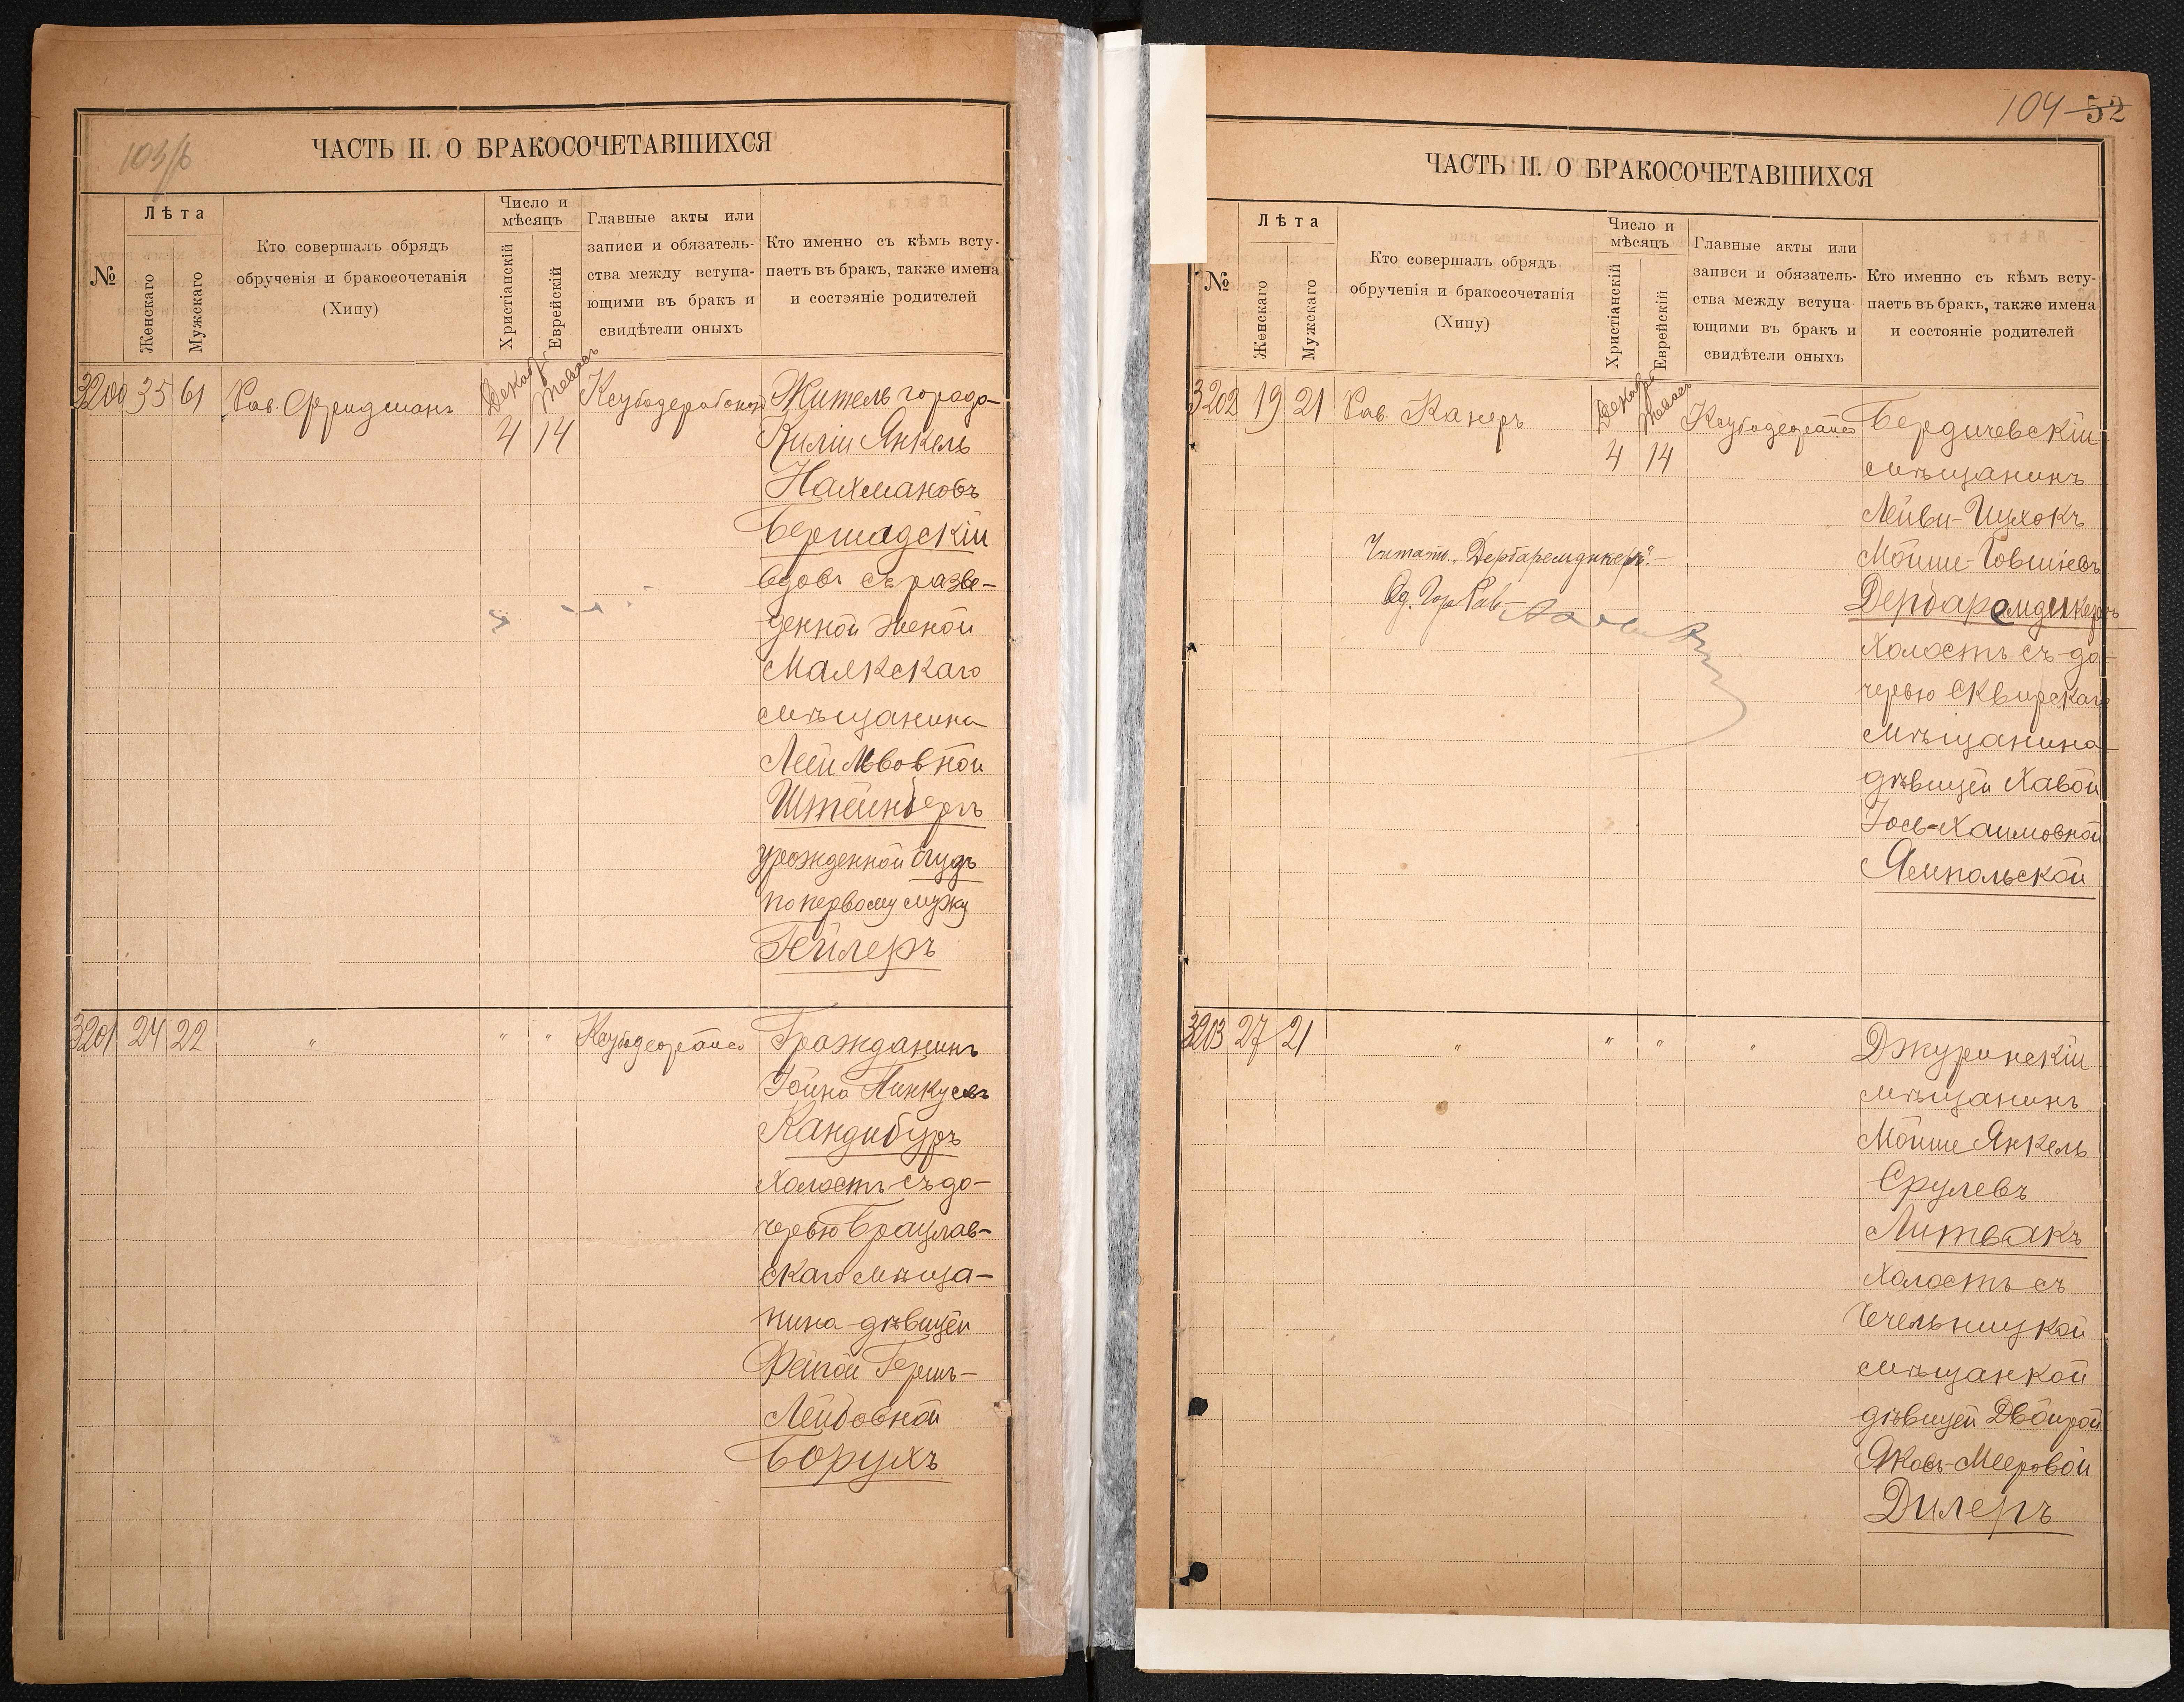 103/б
ЧАСТЬ II. О БРАКОСОЧЕТАВШИХСЯ
№
Лѣта
Женскаго
Мужскаго
Кто совершалъ обрядъ
обрученія и бракосочетанія
(Хипу)
Число и
мѣсяцъ
Христіанскій
Еврейскій
Главные акты или
записи и обязатель-
ства между вступа-
ющими въ бракъ и
свидѣтели оныхъ
Кто именно съ кѣмъ всту-
паетъ въ бракъ, также имена
и состояніе родителей
3200 35 61 Рав. Фридманъ Декабрь 4 Тевесъ 14
Житель города
Килiи Янкель
Нахмановъ
Бершадскій
вдовъ съ разве-
денной женой
смѣщанина
Леей Львовной
Штейнбергъ
урожденной
по первому мужу
Гейлеръ
3201 24 22 " " "
Гражданинъ
Іойна Пинкусовъ
Кандибуръ
холостъ съ до-
черью Брацлав-
скаго мѣща-
нина дѣвицей
Фейгой Гершъ-
Лейбовной
Борухъ
104 52
ЧАСТЬ II. О БРАКОСОЧЕТАВШИХСЯ
№
Лѣта
Женскаго
Мужскаго
Кто совершалъ обрядъ
обрученія и бракосочетанія
(Хипу)
Число и
мѣсяцъ
Христіанскій
Еврейскій
Главные акты или
записи и обязатель-
ства между вступа-
ющими въ бракъ и
свидѣтели оныхъ
Кто именно съ кѣмъ всту-
паетъ въ бракъ, также имена
и состояніе родителей
3202 19 21 Рав. Канеръ Декабрь 4 Тевесъ 14
Бердичевскій
мѣщанинъ
Лейви-Ицхокъ
Мойше-Іовшіевъ
Дербаремдикеръ
холостъ съ до-
черью Сквирскаго
мѣщанина
дѣвицей Хавой
Іось-Хаимовной
Ямпольской
Читать „Дербаремдикеръ".
Од. Гор. Рав.
3203 27 21 " " " "
Джуринскій
мѣщанинъ
Мойше Янкель
Срулевъ
Литвакъ
холостъ съ
Чечельницкой
мѣщанкой
дѣвицей Двойрой
Яковъ-Мееровой
Дилеръ